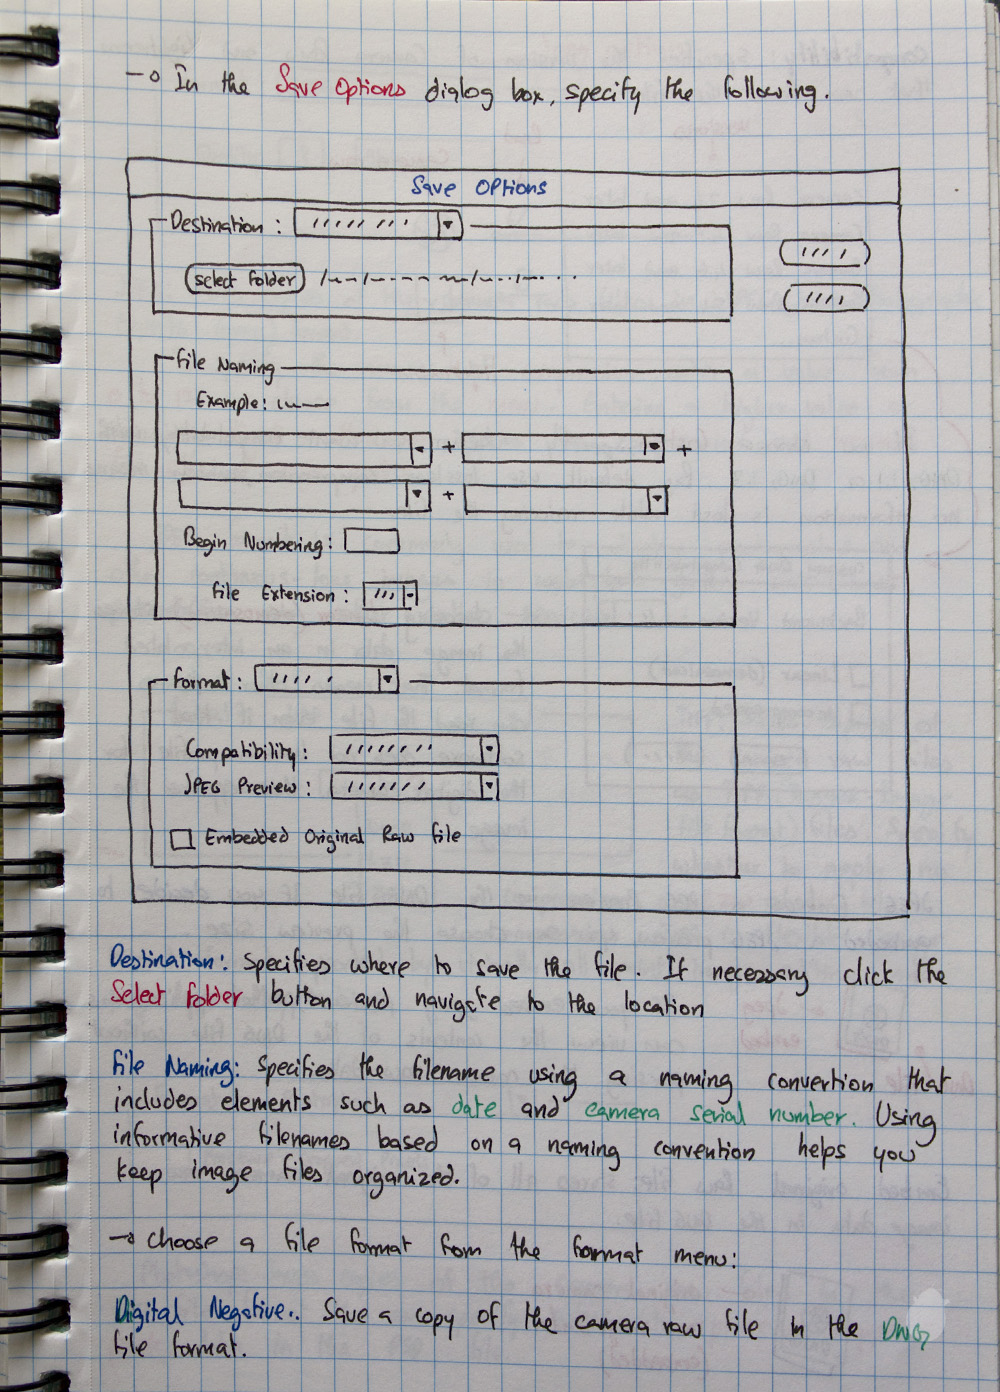 → In the Save Options dialog box, specify the following.
Save Options
Destination:
Select Folder
File Naming
Example:
+ +
+
Begin Numbering:
File Extension:
Format:
Compatibility:
JPEG Preview:
Embedded Original Raw file
Destination: Specifies where to save the file. If necessary click the
Select Folder button and navigate to the location
File Naming: Specifies the filename using a naming convertion that
includes elements such as date and camera serial number. Using
informative filenames based on a naming convention helps you
keep image files organized.
→ Choose a file format from the format menu:
Digital Negative.. Save a copy of the camera raw file in the DNG
file format.